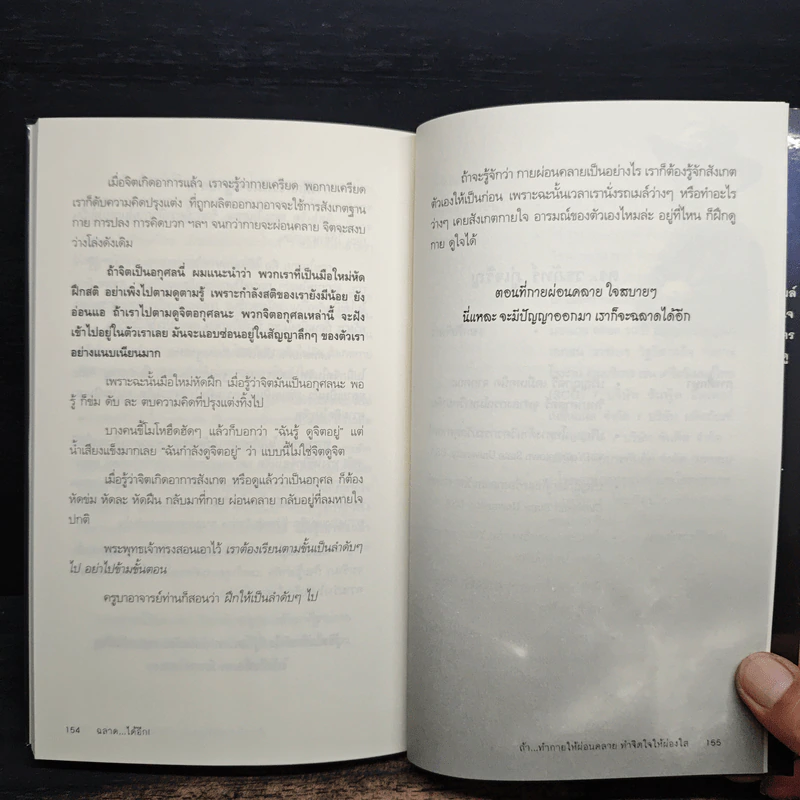 เมื่อจิตเกิดอาการแล้ว เราจะรู้ว่ากายเครียด พอกายเครียด
เราก็ดับความคิดปรุงแต่ง ที่ถูกผลิตออกมาอาจจะใช้การสังเกตฐาน
กาย การปลง การคิดบวก ฯลฯ จนกว่ากายจะผ่อนคลาย จิตจะสงบ
ว่างโล่งดังเดิม
ถ้าจิตเป็นอกุศลนี่ ผมแนะนำว่า พวกเราที่เป็นมือใหม่หัด
ฝึกสติ อย่าเพิ่งไปตามดูตามรู้ เพราะกำลังสติของเรายังมีน้อย ยัง
อ่อนแอ ถ้าเราไปตามดูจิตอกุศลนะ พวกจิตอกุศลเหล่านี้ จะฝัง
เข้าไปอยู่ในตัวเราเลย มันจะแอบซ่อนอยู่ในสัญญาลึกๆ ของตัวเรา
อย่างแนบเนียนมาก
เพราะฉะนั้นมือใหม่หัดฝึก เมื่อรู้ว่าจิตมันเป็นอกุศลนะ พอ
รู้ ก็ข่ม ดับ ละ ตบความคิดที่ปรุงแต่งทิ้งไป
บางคนขี้โมโหฮึดฮัดๆ แล้วก็บอกว่า "ฉันรู้ ดูจิตอยู่" แต่
น้ำเสียงแข็งมากเลย "ฉันกำลังดูจิตอยู่" ว่า แบบนี้ไม่ใช่จิตดูจิต
เมื่อรู้ว่าจิตเกิดอาการสังเกต หรือดูแล้วว่าเป็นอกุศล ก็ต้อง
หัดข่ม หัดละ หัดฝืน กลับมาที่กาย ผ่อนคลาย กลับอยู่ที่ลมหายใจ
ปกติ
พระพุทธเจ้าทรงสอนเอาไว้ เราต้องเรียนตามขั้นเป็นลำดับๆ
ไป อย่าไปข้ามขั้นตอน
ครูบาอาจารย์ท่านก็สอนว่า ฝึกให้เป็นลำดับๆ ไป
154 ฉลาด...ได้อีก!
ถ้าจะรู้จักว่า กายผ่อนคลายเป็นอย่างไร เราก็ต้องรู้จักสังเกต
ตัวเองให้เป็นก่อน เพราะฉะนั้นเวลาเรานั่งรถเมล์ว่างๆ หรือทำอะไร
ว่างๆ เคยสังเกตกายใจ อารมณ์ของตัวเองไหมล่ะ อยู่ที่ไหน ก็ฝึกดู
กาย ดูใจได้
ตอนที่กายผ่อนคลาย ใจสบายๆ
นี่แหละ จะมีปัญญาออกมา เราก็จะฉลาดได้อีก
ถ้า...ทำกายให้ผ่อนคลาย ทำจิตใจให้ผ่องใส 155